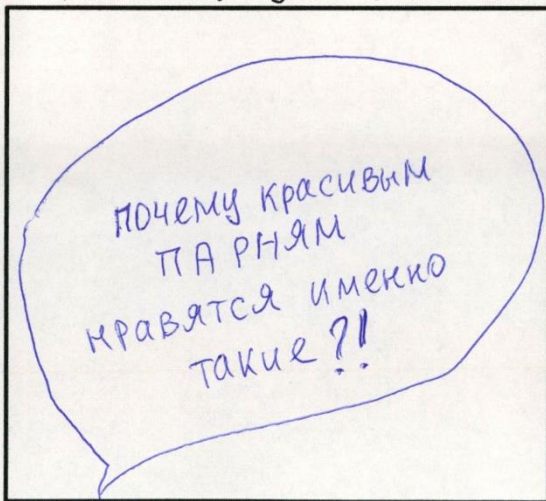 почему красивым
ПАРНЯМ
нравятся именно
такие?!